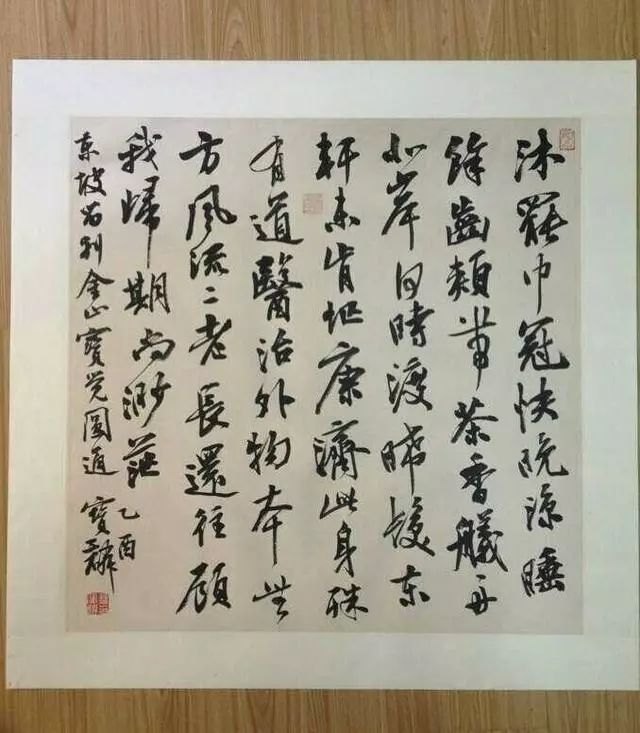 沐罷巾冠快晚涼睡
餘齒頰帶茶香艤舟
北岸何時渡晞髮東
軒未肯忙康濟此身殊
有道醫治外物本無
方風流二老長還往顧
我歸期尚渺茫
東坡留別金山寶覺圓通
乙酉
寶麟